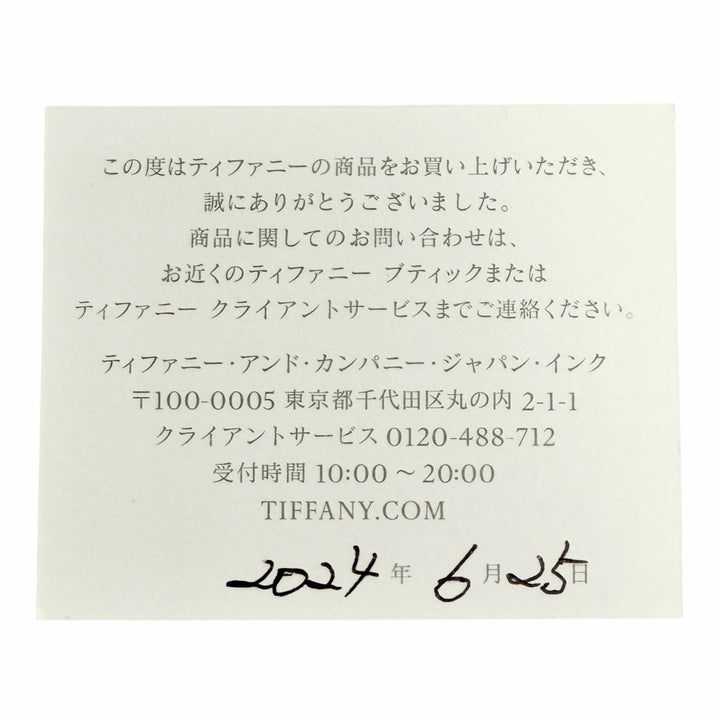 この度はティファニーの商品をお買い上げいただき、
誠にありがとうございました。
商品に関してのお問い合わせは、
お近くのティファニー ブティックまたは
ティファニー クライアントサービスまでご連絡ください。
ティファニー・アンド・カンパニー・ジャパン・インク
〒100-0005 東京都千代田区丸の内 2-1-1
クライアントサービス 0120-488-712
受付時間 10:00 〜 20:00
TIFFANY.COM
2024 年 6 月 25 日